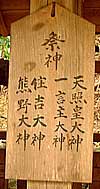 祭神
天照皇大神
一言主大神
住吉大神
熊野大神